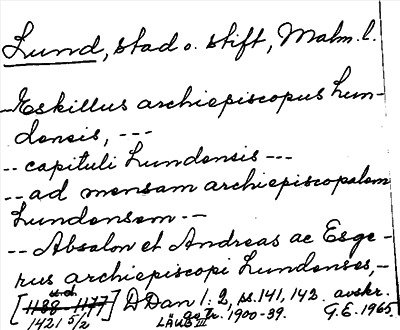 Lund, stad o. stift, Malm. l.
-- Eskillus archiepiscopus Lun-
densis, ---
-- capituli Lundensis ---
-- ad mensam archiepiscopalem
Lundensem --
-- Absalon et Andreas ac Esge-
rus archiepiscopi Lundenses, --
u.d.
[1188-1177] DDan 1:2, ss. 141, 142. avskr.
1421 5/2 LÄUB III getr. 1900-39. G.E. 1965